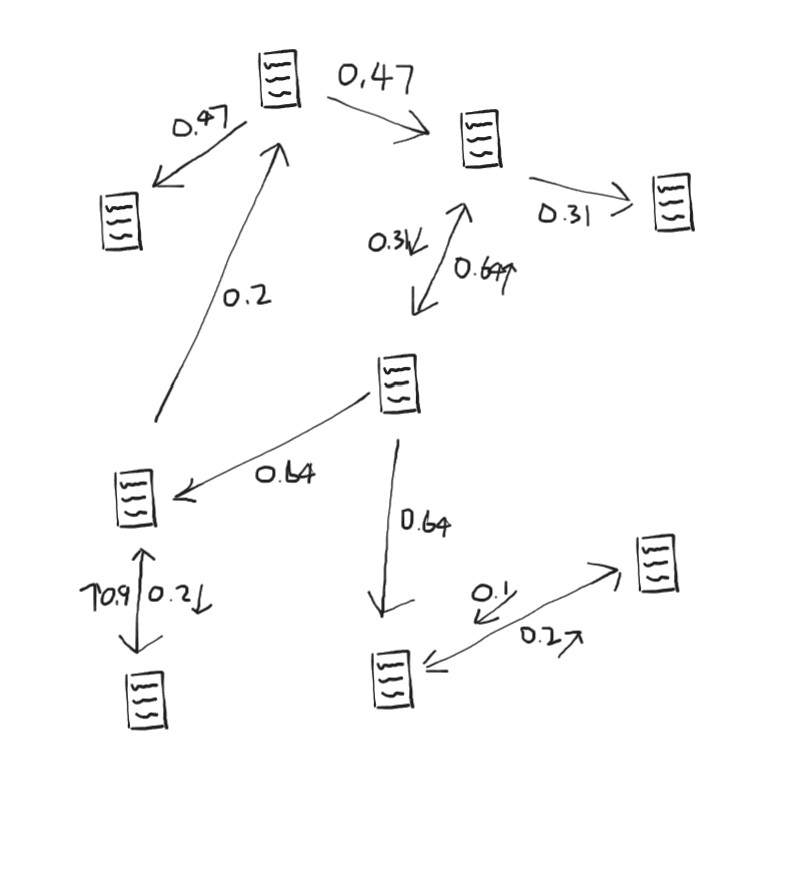 0.47
0.47
0.31
0.31↙
0.64↑
0.2
0.64
0.64
↑0.9
0.2↓
0.1
↙
0.2↗